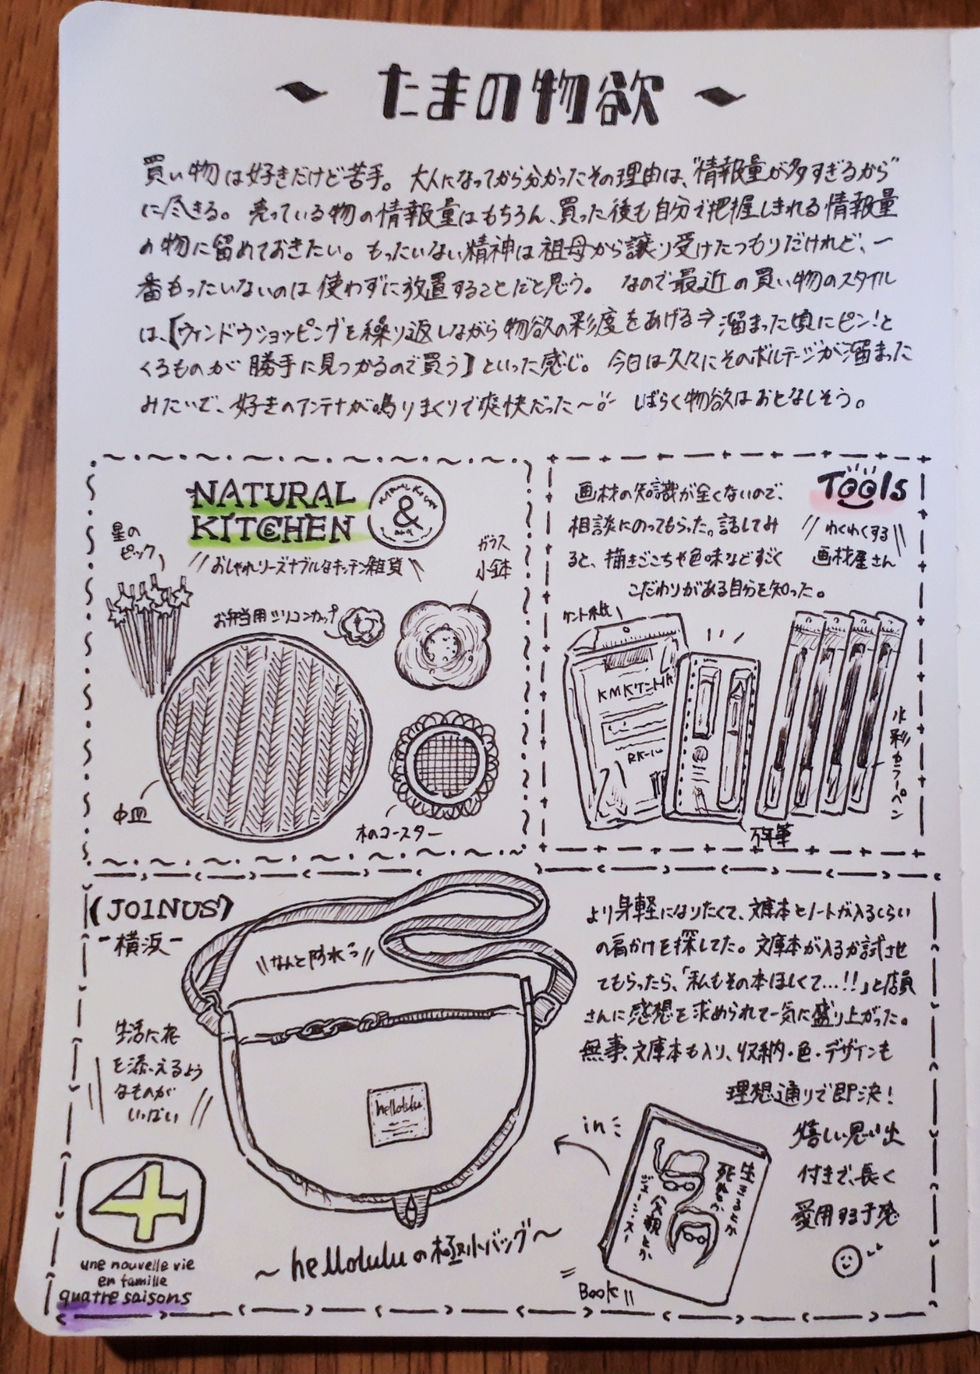 たまの物欲
買い物は好きだけど苦手。大人になってから分かったその理由は、"情報量が多すぎるから"
に尽きる。売っている物の情報量はもちろん、買った後も自分で把握しきれる情報量
の物に留めておきたい。もったいない精神は祖母から譲り受けたつもりだけれど、一
番もったいないのは使わずに放置することだと思う。なので最近の買い物のスタイル
は、【ウィンドウショッピングを繰り返しながら物欲の彩度をあげる→溜まった頃にピン!と
くるものが勝手に見つかるので買う】といった感じ。今日は久々にそのボルテージが溜まった
みたいで、好きのアンテナが鳴りまくりで爽快だった〜 しばらく物欲はおとなしそう。
NATURAL
KITCHEN
&
おしゃれリーズナブルなキッチン雑貨
星の
ピック
お弁当用シリコンカップ
ガラス
小鉢
中皿
木のコースター
Tools
わくわくする
画材屋さん
画材の知識が全くないので、
相談にのってもらった。話してみ
ると、描きごこちや色味などすごく
こだわりがある自分を知った。
ケント紙
KMKケント
万年筆
水彩カラーペン
(JOINUS)
-横浜-
なんと防水
生活に花
を添えるよう
なものが
いっぱい
hellolulu
4
une nouvelle vie
en famille
quatre saisons
〜helloluluの極小バッグ〜
より身軽になりたくて、文庫本とノートが入るくらい
の肩かけを探してた。文庫本が入るか試させ
てもらったら、「私もその本ほしくて…!!」と店員
さんに感想を求められて一気に盛り上がった。
無事、文庫本も入り、収納・色・デザインも
理想通りで即決!
嬉しい思い出
付きで、長く
愛用する予感
in
Book